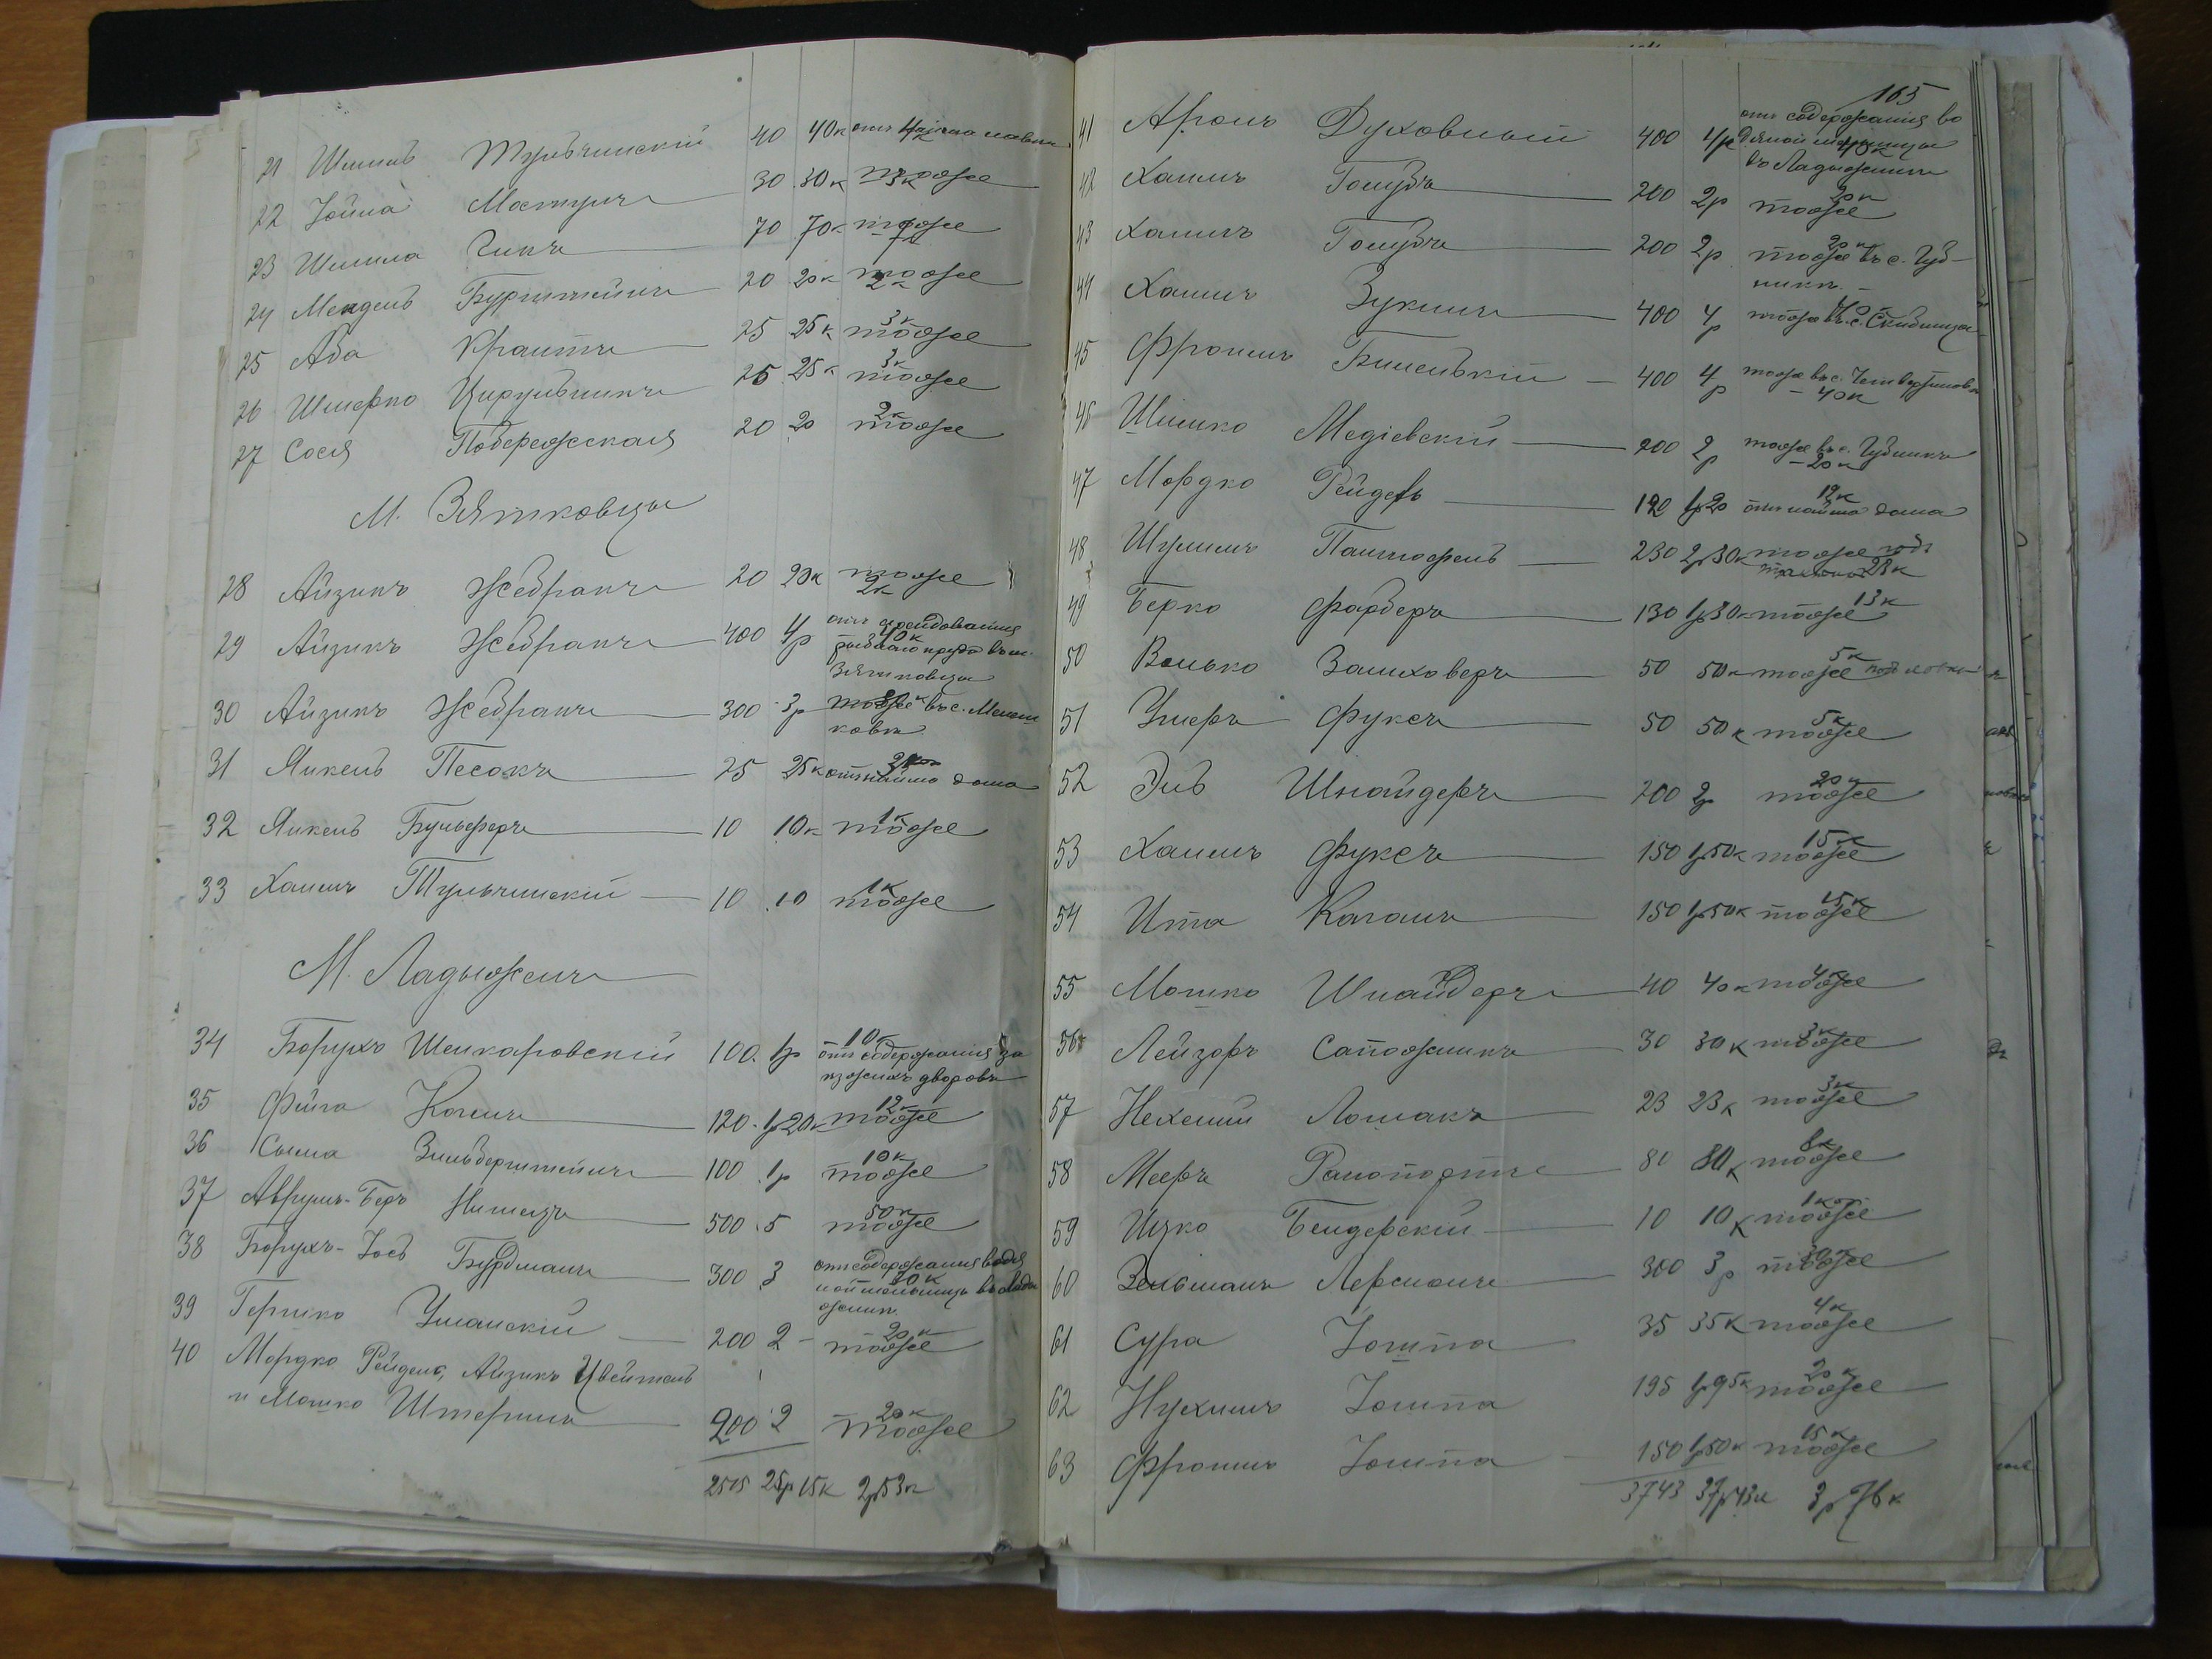 21 Шмиль Тульчинскій 40 40к отъ найма лавки 4к
22 Іойна Мастуръ 30 30к тоже 3к
23 Шмила Чикъ 70 70к тоже 7к
24 Мендель Бурштейнъ 20 20к тоже 2к
25 Аба Крантъ 25 25к тоже 3к
26 Шмерко Цирульникъ 25 25к тоже 3к
27 Сося Побережская 20 20 тоже 2к
М. Зятковцы
28 Айзикъ Жебракъ 20 20к тоже 2к
29 Айзикъ Жебракъ 400 4р отъ арендованія 40к
рыбнаго пруда въ м.
Зятковцы
30 Айзикъ Жебракъ 300 3р тоже въ с. 30к
ковки
31 Янкель Песокъ 25 25к отъ найма дома
32 Янкель Бульферъ 10 10к тоже 1к
33 Хаимъ Тульчинскій 10 10 тоже 1к
М. Ладыжинъ
34 Борухъ Шенкаровскій 100 1р 10к отъ содержанія за
изжихъ дворовъ
35 Фейга Коганъ 120 1р20к тоже 12к
36 Сыма Зильберштейнъ 100 1р тоже 10к
37 Аврумъ-Беръ Нимецъ 500 5 тоже 50к
38 Борухъ-Іось Бурдманъ 300 3 отъ содержанія водя
ной мельницы въ Лады 30к
жини
39 Гершко Уманскій 200 2 тоже 20к
40 Мордко Рейдель, Айзикъ Цвейтель
и Мошко Штернъ 200 2 тоже 20к
2515 25р15к 2р53к
165
41 Аронъ Духовный 400 4р отъ содержанія во
дяной мельницы 40к
въ Ладыжини
42 Хаимъ Голубъ 200 2р тоже 20к
43 Хаимъ Голубъ 200 2р тоже въ с. Губ- 20к
никъ
44 Хаимъ Зукинъ 400 4р тоже въ с. Скибинцы 40к
45 Фроимъ Билецькій 400 4р тоже въ с. Четвертиновк
40к
46 Шлимко Медіевскій 200 2р тоже въ с. Губникъ
20к
47 Мордко Рейдель 120 1р20 отъ найма дома 12к
48 Шулимъ Пантофель 230 2р30к тоже подъ
23к
49 Берко Фарберъ 130 1р30к тоже 13к
50 Волько Залиховеръ 50 50к тоже 5к
51 Умеръ Фуксъ 50 50к тоже 5к
52 Эль Шнайдеръ 200 2р тоже 20к
53 Хаимъ Фуксъ 150 1р50к тоже 15к
54 Ита Каганъ 150 1р50к тоже 15к
55 Мошко Шнайдеръ 40 40к тоже 4к
56 Лейзоръ Сапожникъ 30 30к тоже 3к
57 Нехемій Лошакъ 23 23к тоже 3к
58 Мееръ Рапопортъ 80 80к тоже 8к
59 Ицко Бендерскій 10 10к тоже 1к
60 Зельманъ Лерманъ 300 3р тоже 30к
61 Сура Іоцпа 35 35к тоже 4к
62 Нухимъ Іоцпа 195 1р95к тоже 20к
63 Фроимъ Іоцпа 150 1р50к тоже 15к
3743 37р43к 3р76к